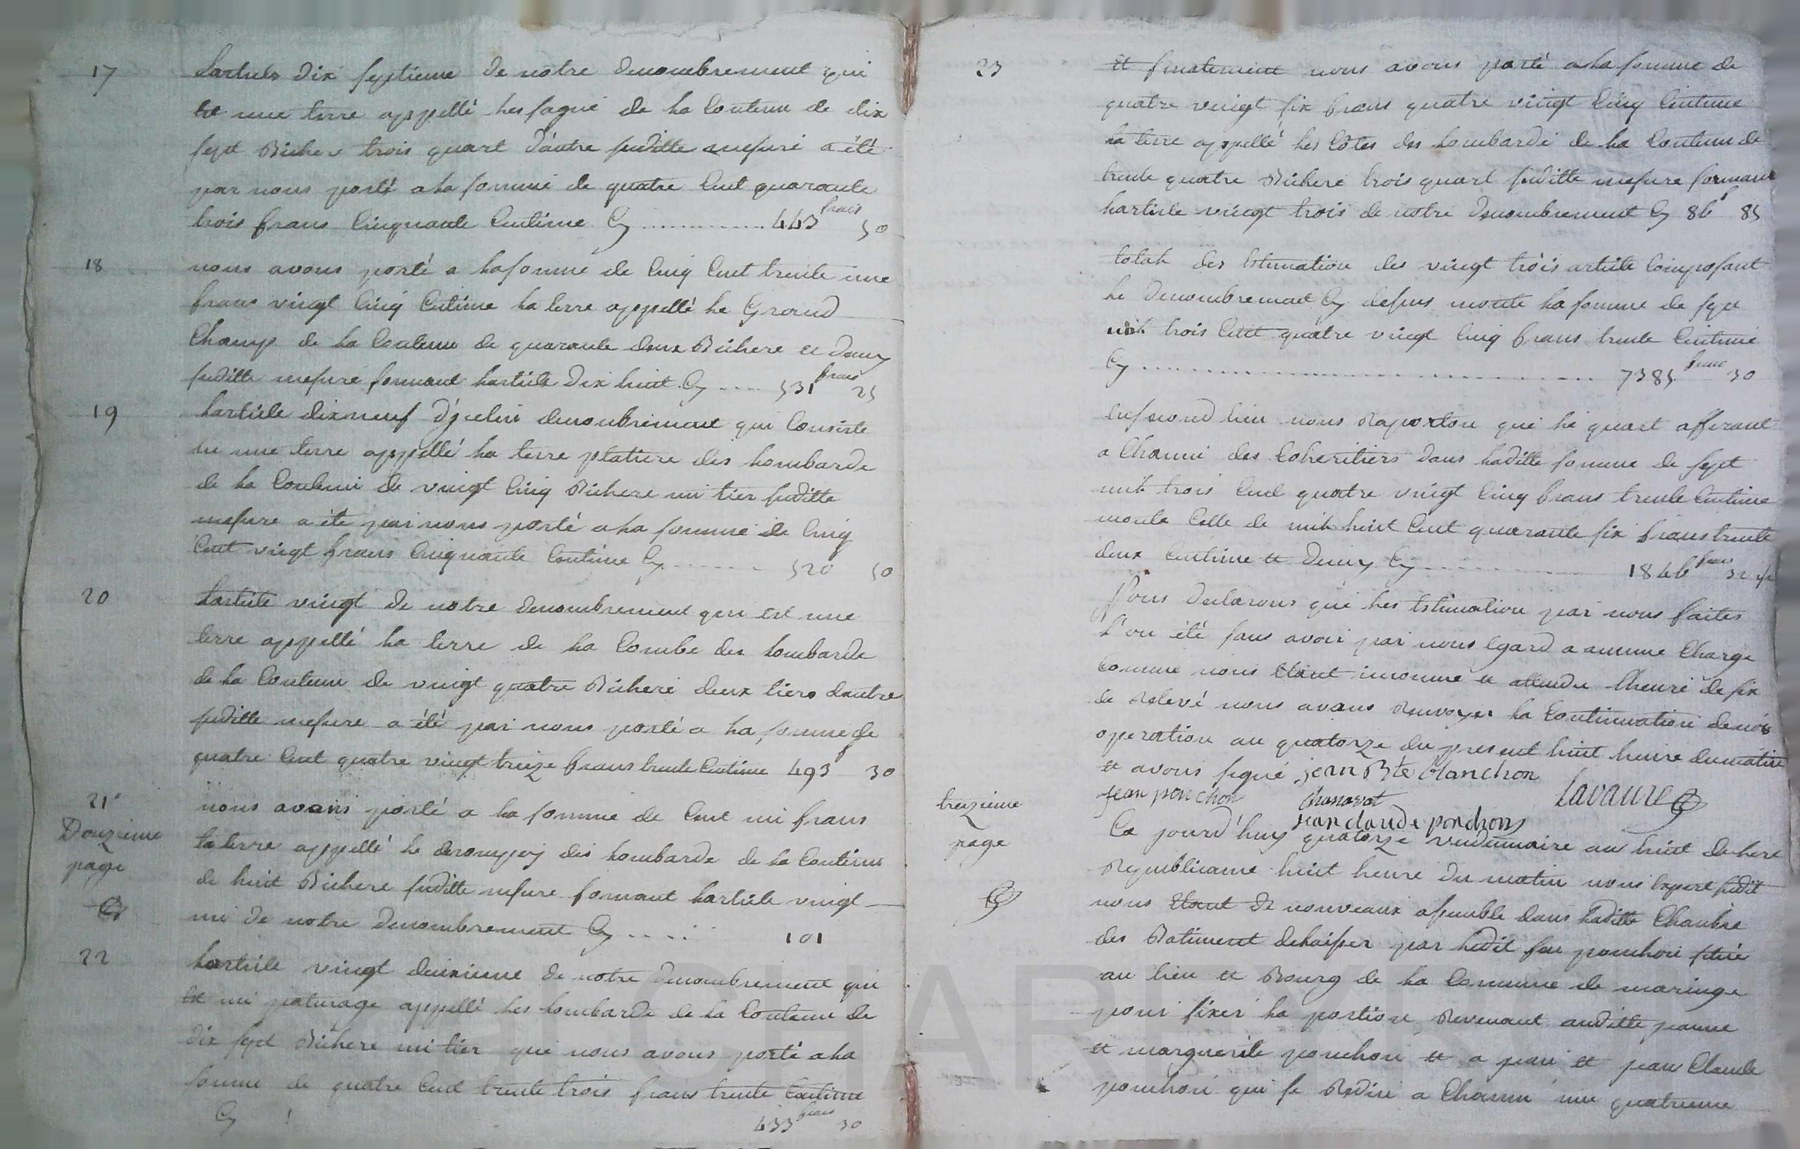 17
Larticle dix septieme de notre denombrement qui
est une terre appellé les fagne de la Contenu de dix
sept Bichere trois quart d'autre suditte mesure a été
par nous porté a la somme de quatre Cent quarante
trois frans Cinquante Centime Cy ............ 443 frans 50
18
nous avons porté a la somme de Cinq Cent trente une
frans vingt Cinq Centime la terre appellé le Grand
Champ de la Contenu de quarante deux Bichere et demy
suditte mesure formant larticle dix huit Cy .... 531 frans 25
19
larticle dixneuf d'yceluy denombrement qui Consiste
en une terre appellé la terre platiere des lombarde
de la Contenu de vingt Cinq Bichere un tier suditte
mesure a été par nous porté a la somme de Cinq
Cent vingt frans Cinquante Centime Cy ........ 520 50
20
Larticle vingt de notre denombrement qui est une
terre appellé la terre de la Combe des lombarde
de la Contenu de vingt quatre Bichere deux tiers dautre
suditte mesure a été par nous porté a la somme de
quatre Cent quatre vingt treize frans trente Centime 493 f 30
21
nous avons porté a la somme de Cent un frans
Douzieme
la terre appellé le des lombarde de la Contenu
page
de huit Bichere suditte mesure formant larticle vingt
un de notre denombrement Cy ..... 101
22
Larticle vingt deuxieme de notre denombrement qui
est un paturage appellé les lombarde de la Contenu de
dix sept Bichere un tier que nous avons porté a la
somme de quatre Cent trente trois frans trente Centime
Cy 433 frans 30
23
Et finalement nous avons porté a la somme de
quatre vingt six frans quatre vingt Cinq Centime
la terre appellé les Côtes des Lombarde de la Contenu de
trente quatre Bichere trois quart suditte mesure formant
larticle vingt trois de notre denombrement Cy 86 f 85
total des Estimation des vingt trois article Composant
le denombrement Cy desus monte la somme de sept
mil trois Cent quatre vingt Cinq frans trente Centime
Cy .............................. 7385 frans 30
En second lieu nous Raporton que le quart afferant
a Chacune des Coheritiers dans laditte somme de sept
mil trois Cent quatre vingt Cinq frans trente Centime
monte Celle de mil huit Cent quarante six frans trente
deux Centime et demy Cy ............ 1846 frans 32 ½
Nous declarons que les Estimation par nous faites
l'on été sans avoir par nous Egard a aucune Charge
Comme nous Etant inconnue et attendu lheure de six
de Relevé nous avons Renvoyer la Continuation de nos
operation au quatorze du present huit heure du matin
et avons signé jean Bte blanchon
jean ponchon Chassarot Lavaure
jean claude ponchon
treizieme
page
Ce jourd'huy quatorze vendemiaire an huit de lhere
Republicaine huit heure du matin nous Expert sudit
nous Etant de nouveaux assemble dans laditte Chambre
des Batiment delaisser par ledit feu ponchon situé
au lieu et Bourg de la Commune de maringe
pour fixer la portion Revenant auditte jeanne
et marguerite ponchon et a jean et jean Claude
ponchon qui se Reduit a Chacun une quatrieme